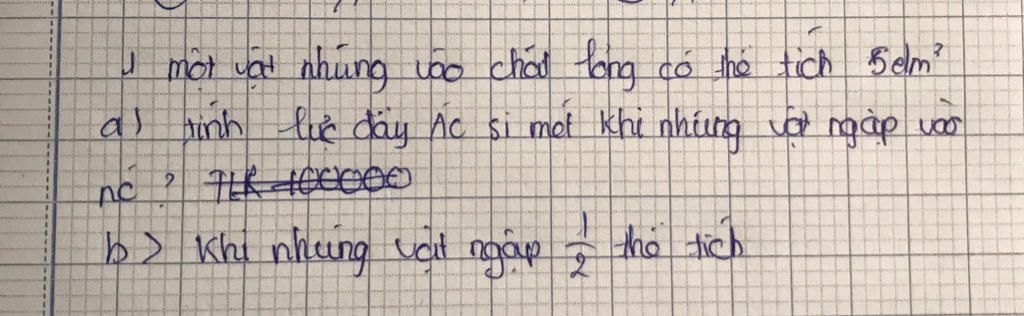 1 một vật nhúng vào chất lỏng có thể tích 5dm³
a) tính lực đẩy Ác si mét khi nhúng vật ngập vào
nc ?
b> Khi nhúng vật ngập 1/2 thể tích